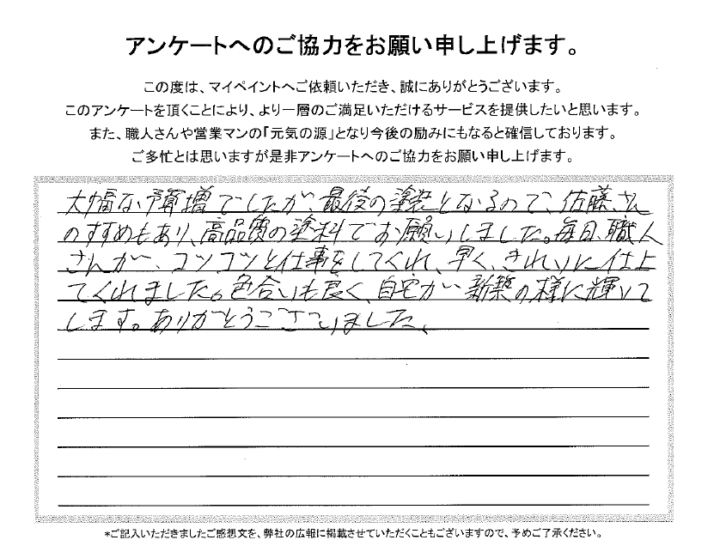 アンケートへのご協力をお願い申し上げます。
この度は、マイペイントへご依頼いただき、誠にありがとうございます。
このアンケートを頂くことにより、より一層のご満足いただけるサービスを提供したいと思います。
また、職人さんや営業マンの「元気の源」となり今後の励みにもなると確信しております。
ご多忙とは思いますが是非アンケートへのご協力をお願い申し上げます。
大幅な予算増でしたが、最後の塗装となるので、佐藤さん
のすすめもあり、高品質の塗料でお願いしました。毎日、職人
さんが、コツコツと仕事をしてくれ、早く、きれいに仕上
てくれました。色合いも良く、自宅が新築の様に輝いて
します。ありがとうございました。
*ご記入いただきましたご感想文を、弊社の広報に掲載させていただくこともございますので、予めご了承ください。